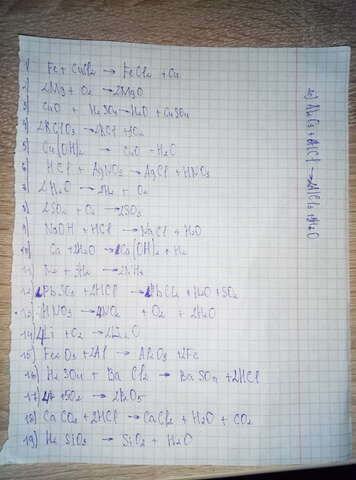 1) Fe + CuCl2 → FeCl2 + Cu
2) 2Mg + O2 → 2MgO
3) CuO + H2SO4 → H2O + CuSO4
4) 2KClO3 → 2KCl + 3O2
5) Cu(OH)2 → CuO + H2O
6) HCl + AgNO3 → AgCl + HNO3
7) 2H2O → 2H2 + O2
8) 2SO2 + O2 → 2SO3
9) NaOH + HCl → NaCl + H2O
10) Ca + 2H2O → Ca(OH)2 + H2
11) N2 + 3H2 → 2NH3
12) PbSO3 + 2HCl → PbCl2 + H2O + SO2
13) 4HNO3 → 4NO2 + O2 + 2H2O
14) 4Li + O2 → 2Li2O
15) Fe2O3 + 2Al → Al2O3 + 2Fe
16) H2SO4 + BaCl2 → BaSO4 + 2HCl
17) 4P + 5O2 → 2P2O5
18) CaCO3 + 2HCl → CaCl2 + H2O + CO2
19) H2SiO3 → SiO2 + H2O
20) Al2O3 + 6HCl → 2AlCl3 + 3H2O